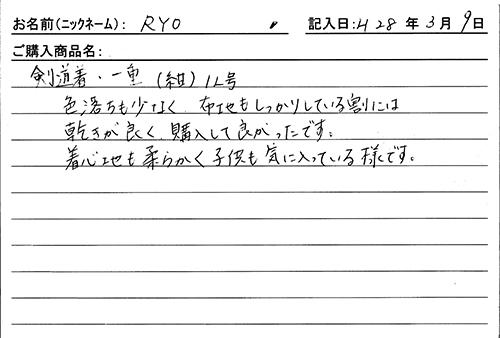 お名前(ニックネーム): RYO 記入日:H28年3月9日
ご購入商品名:
剣道着・一重(紺)1L号
色落ちも少なく、布地もしっかりしている割には
乾きが良く、購入して良かったです。
着心地も柔らかく子供も気に入っている様です。